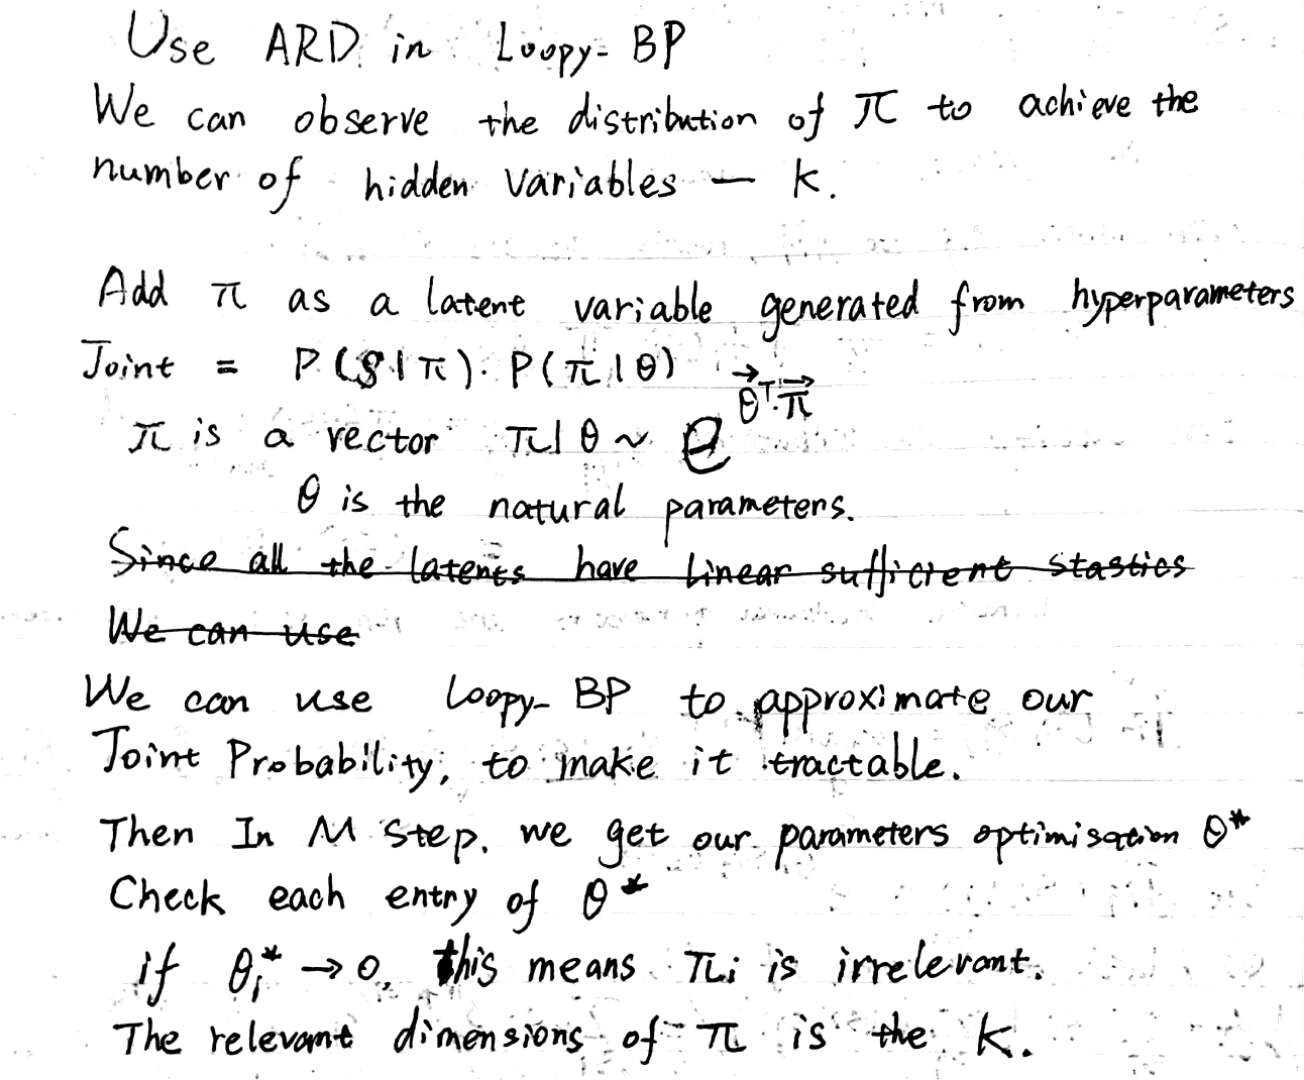 Use ARD in Loopy-BP
We can observe the distribution of π to achieve the
number of hidden variables — k.
Add π as a latent variable generated from hyperparameters
Joint = P(S|π)·P(π|θ)
π is a vector π|θ ~ e^{θ⃗ᵀ·π⃗}
θ is the natural parameters.
Since all the latents have linear sufficient stastics
We can use
We can use Loopy-BP to approximate our
Joint Probability, to make it tractable.
Then In M step, we get our parameters optimisation θ*
Check each entry of θ*
if θᵢ* → 0, this means πᵢ is irrelevant.
The relevant dimensions of π is the k.